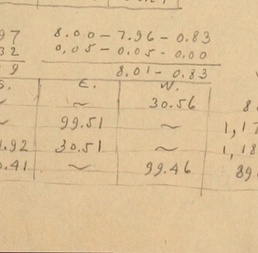 97 8.00 - 7.96 - 0.83
32 0.05 - 0.05 - 0.00
9 8.01 - 0.83
S. E. W.
~ ~ 30.56 8
~ 99.51 ~ 1,1
.92 30.51 ~ 1,18
0.41 ~ 99.46 89